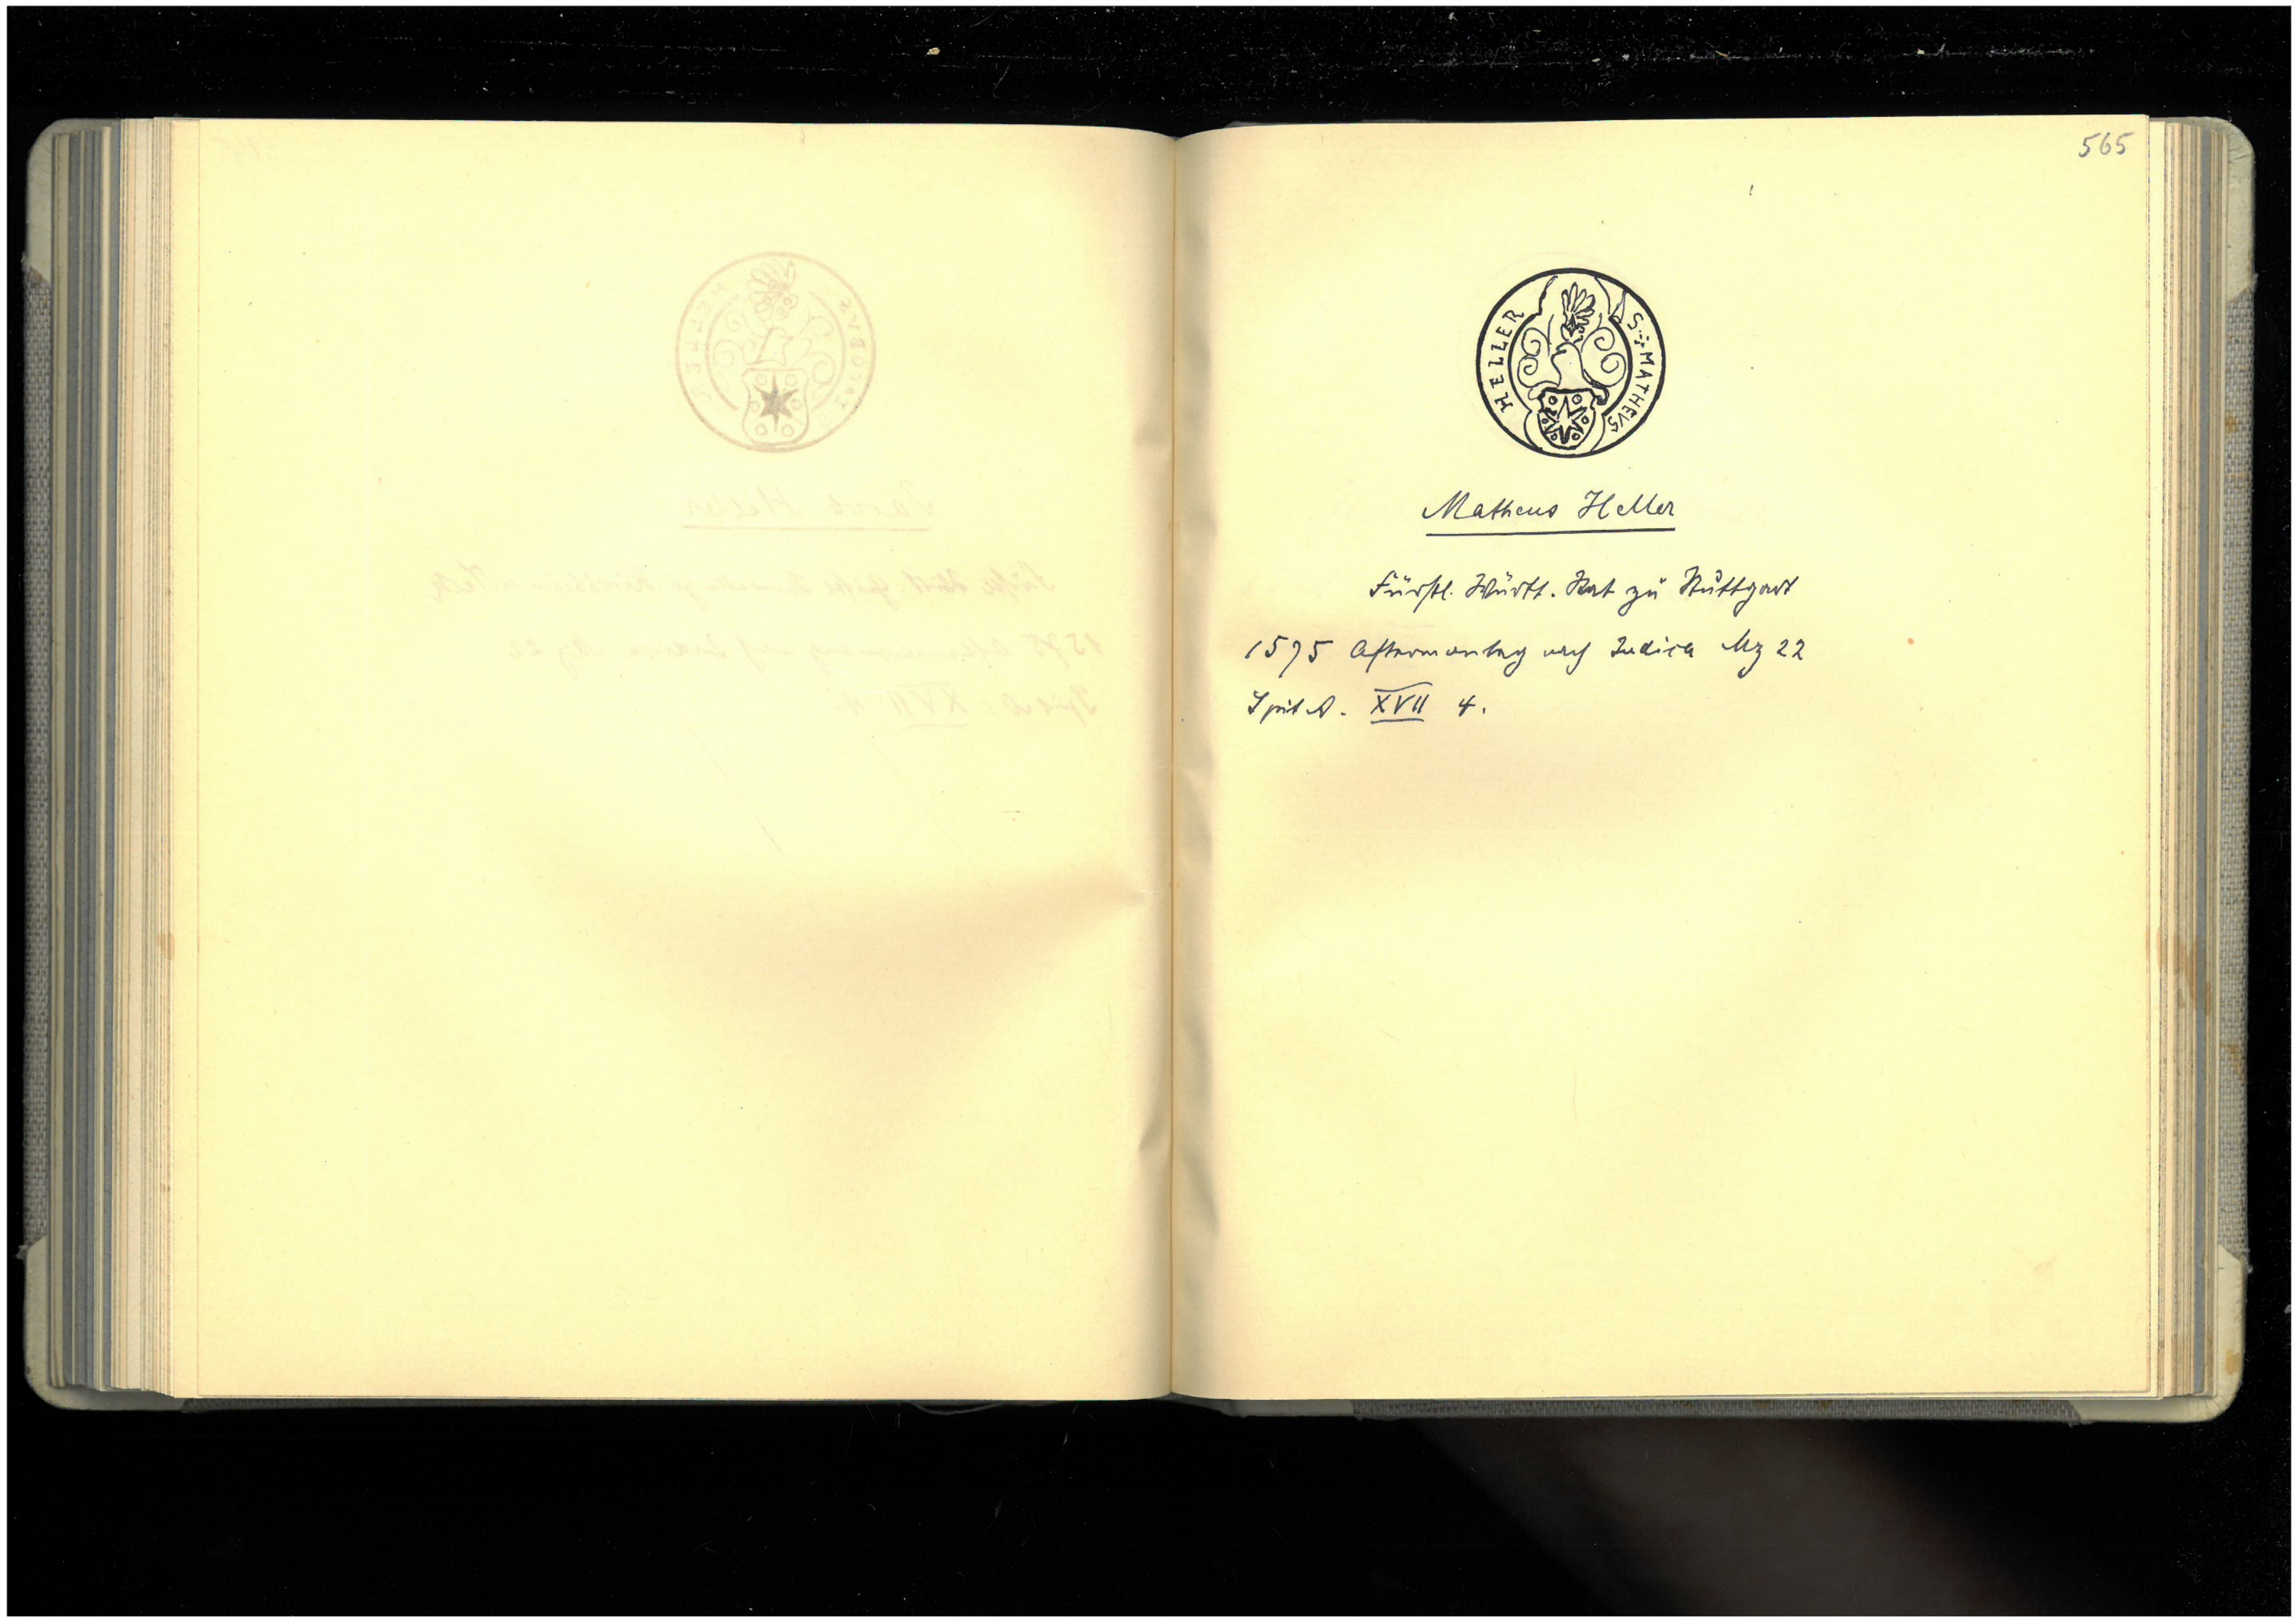 565
S MATHEVS HELLER
Matheus Heller
Fürstl. Württ. Rat zu Stuttgart
1575 Aftermontag nach Judica Mz 22
Spit A. XVII 4.